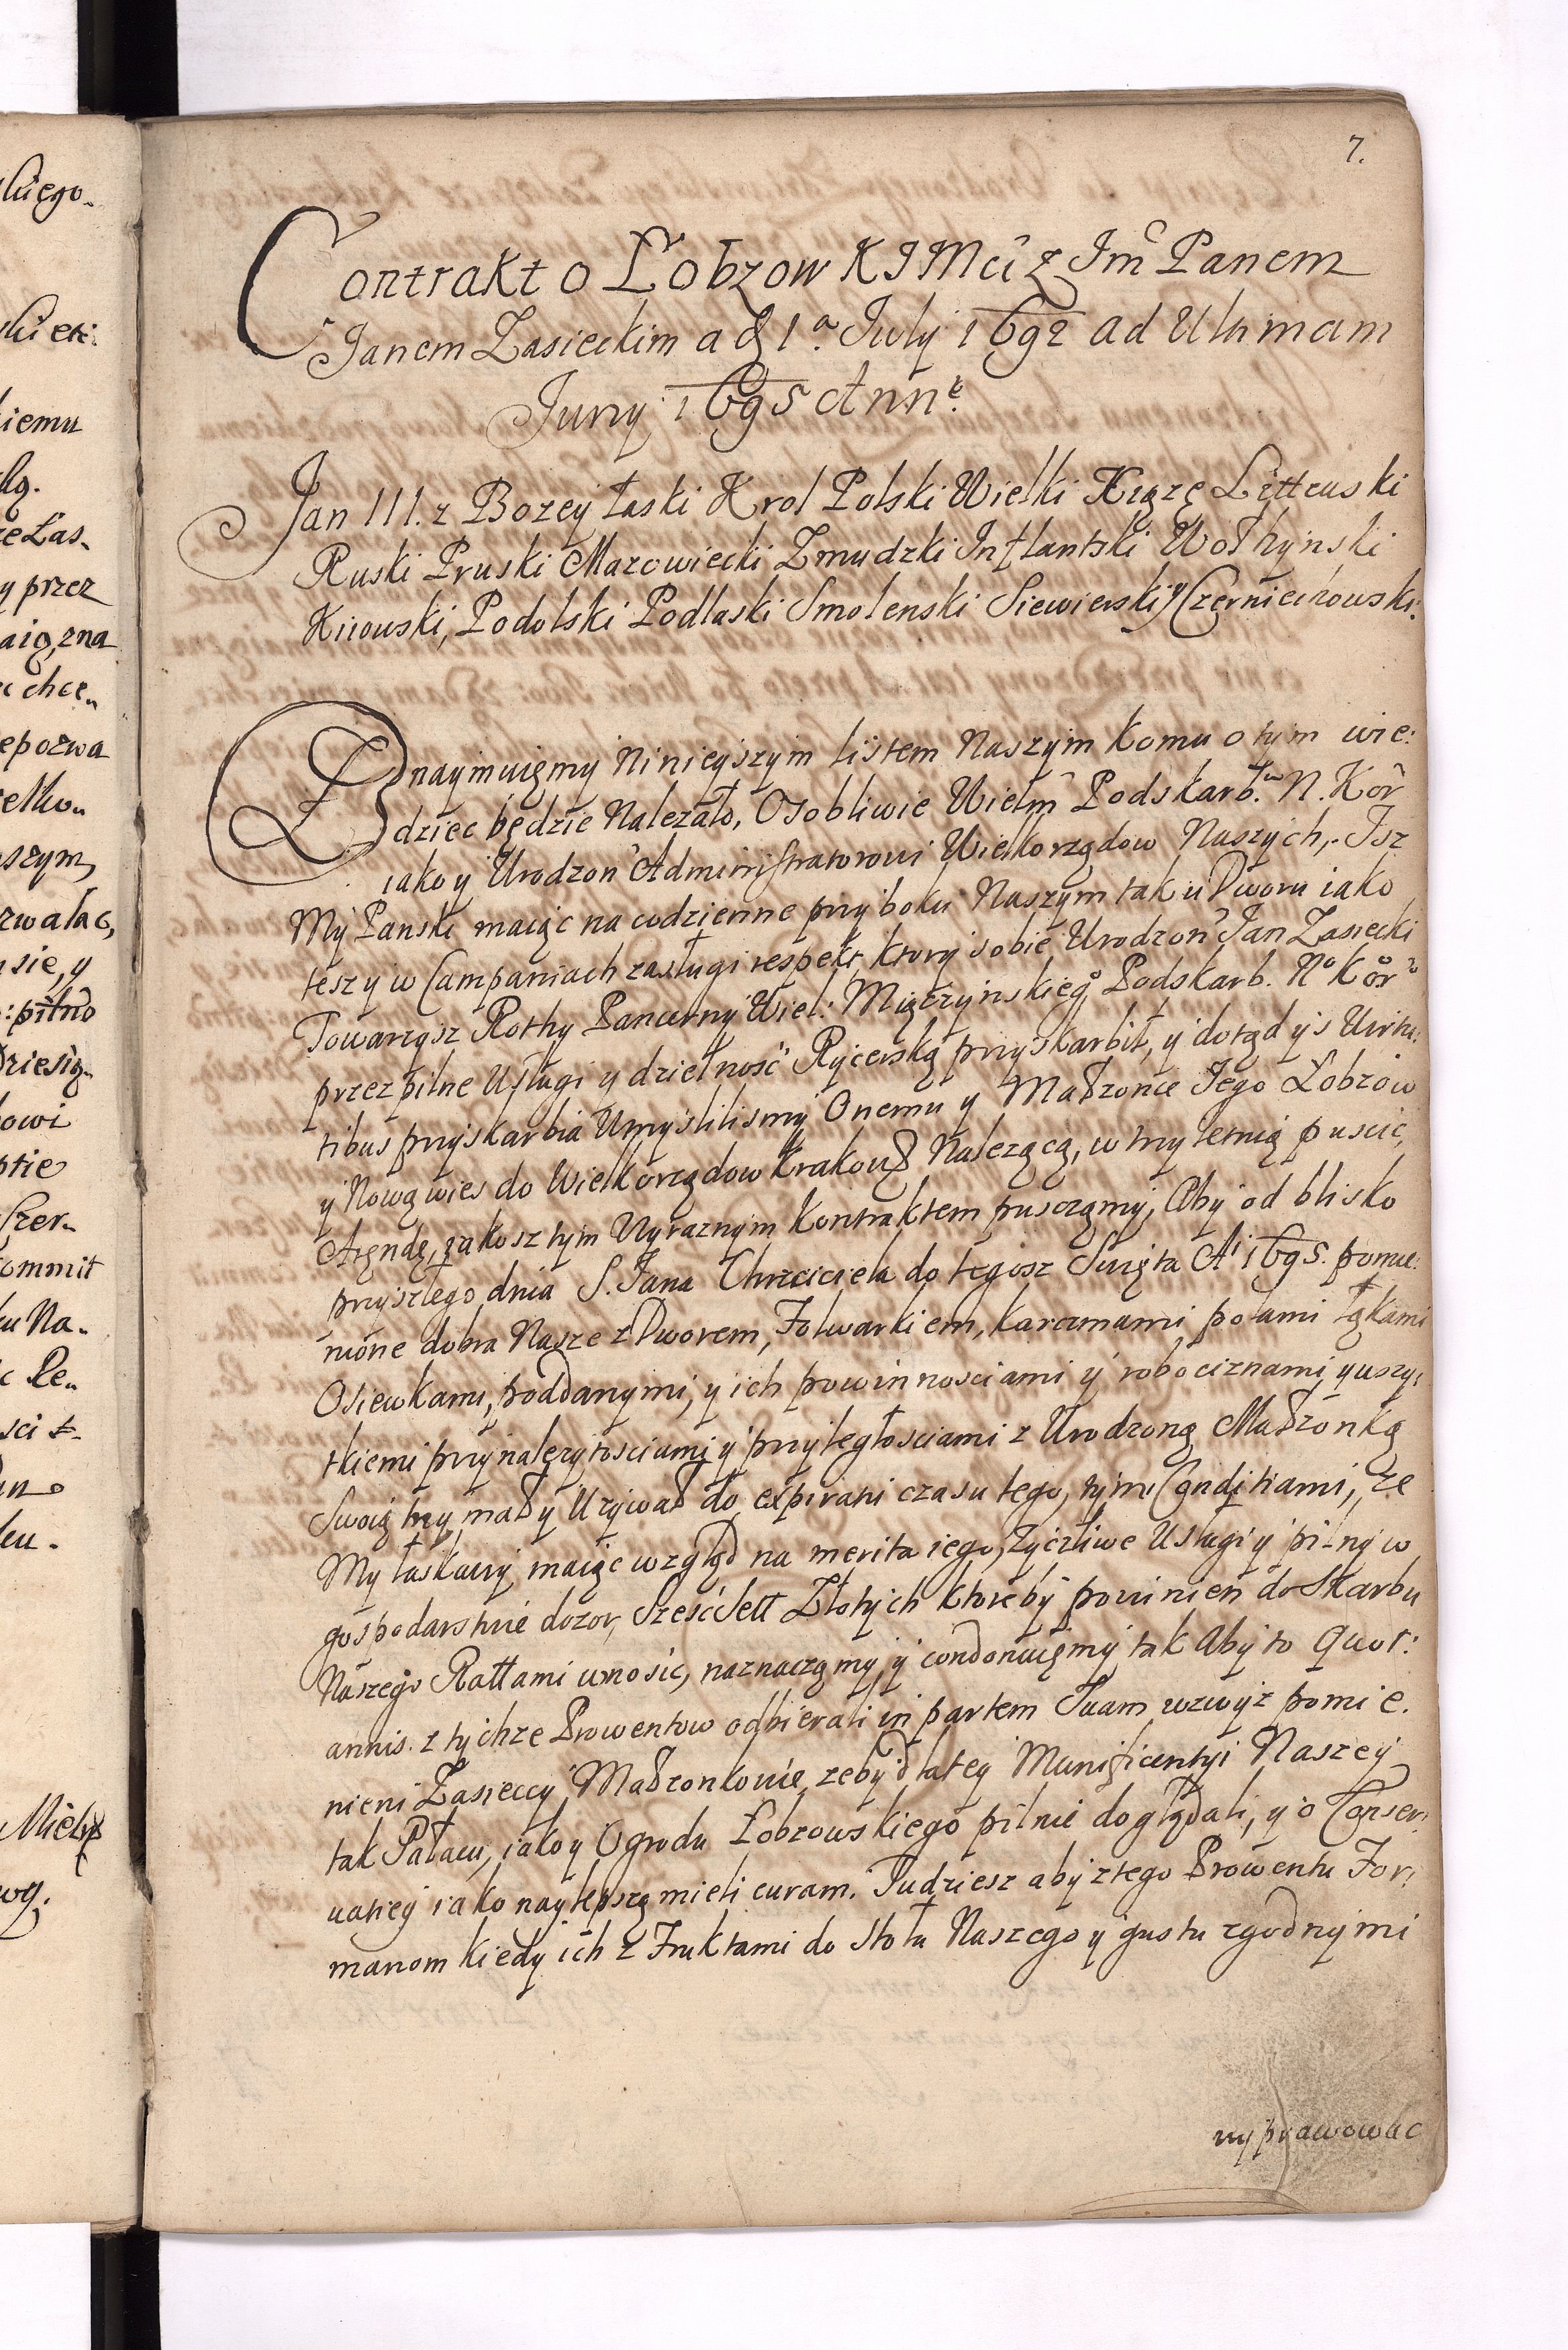 7.
Contrakt o Łobzow KJMći z Jm̂ Panem
Janem Zasieckim a d 1.a July 1692 ad Ultimam
Juny 1695 Ann
Jan III. z Bozey łaski Krol Polski Wielki Xiązę Littewski
Ruski Pruski Mazowiecki Zmudzki Inflantski Wołhynski
Kiiowski, Podolski Podlaski Smolenski Siewierski y Czerniechowski.
Oznaymuięmy Ninieyszym listem Naszym komu o tym wie:
dziec będzie Nalezało, Osobliwie Wielm̂ Podskarb. N. Kor̂
iako y Urodzon Administratorowi Wielkorządow Naszych, Isz
My Panski maiąc na codzienne przy boku Naszym tak u Dworu iako
tesz y w Campaniach zasługi respekt, ktory sobie Urodzon Jan Zasiecki
Towarzysz Rothy Pancerny Wiel: Miączynskieg° Podskarb. N° Kor°
przez pilne Usługi y dzielność Rycerską przyskarbił, y dotąd ys Uirtu:
tibus przyskarbia Umysliliśmy Onemu y Małzonce Jego Łobzow
y Nową wies do Wielkorządow Krakows Nalezącą, w trzyletnią puscic,
Aręndę, iakosz tym Wyraznym Kontraktem pusczamy, Aby od blisko
przyszłego dnia S. Jana Chrzciciela do tegosz Swięta A 1695. pomie:
nione dobra Nasze z Dworem, Folwarkiem, karczmami polami łąkami
Osiewkami, poddanymi, y ich powinnosciami y robociznami y wszy:
tkiemi przynalezytosciami y przyległosciami z Urodzoną Małzonką
Swoią trzymał y Uzywał do expiratii czasu tego, tymi Conditiami, ze
My łaskawy maiąc wzgląd na merita iego, zyczliwe Usługi y pilny w
gospodarstwie dozor, Sześć Sett Złotych ktoreby powinien do Skarbu
Naszego Rattami wnosic, naznaczamy, y condonuięmy tak Aby to quot:
annis z tychze Prowentow odbierali in partem Suam wzwyz pomie.
nieni Zasieccy Małzonkowie, zeby dlatey Munificentyi Naszey
tak Pałacu, iako y Ogrodu Łobzowskiego pilnie doglądali, y o Conser:
uatiey iako naylepszą mieli curam. Tudziesz aby z tego Prowentu For:
manom kiedy ich z Fruktami do Stołu Naszego y gustu zgodnymi
wyprawowac